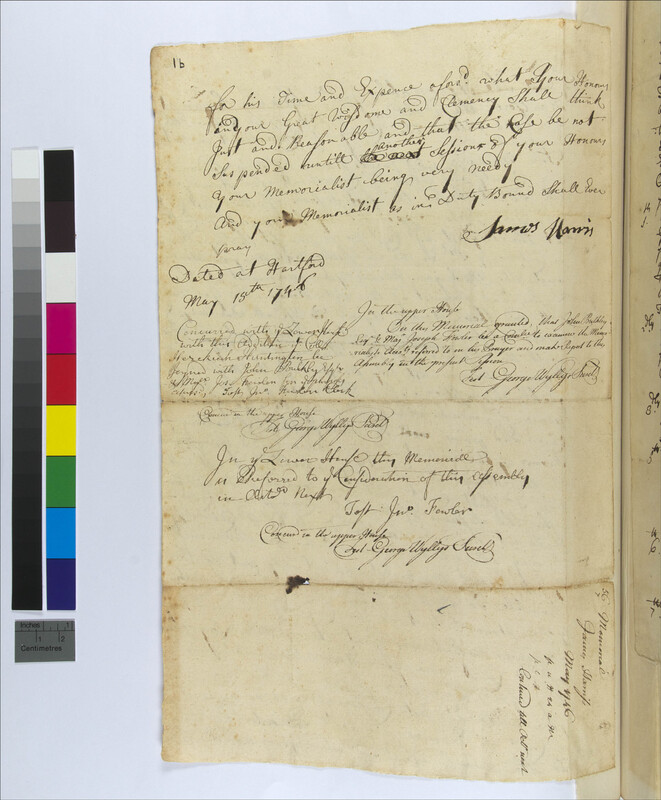 1b
for his Time and Expence afores.d what Your Honours
and your Great Wisdome and Clemency Shall think
Just and Reasonable and that the Case be not
Suspended untill another Sessions of your Honours
Your Memorialist being very Needy
And your Memorialist as in Duty Bound Shall Ever
pray
James Harris
Dated at Hartford
May 15th 1746
In the upper House
On this Memorial granted, that John Bulkley
Esqr & Majr Joseph Fowler be a Comtee to examine the Memo-
rialists Acts referred to in his Prayer and make Report to the
Assembly in the present Session
Test George Wyllys Secrt
Concurred with in ye Lower House
with this Addition yt Colo
Hezekiah Huntington be
joyned with John Bulkly Esqr
Clerk
Concurd in the upper House
Test George Wyllys Secrt
In ye Lower House this Memorial
is Referred to ye Consideration of this Assembly
in Octobr Next
Test Jno. Fowler
Concurd in the upper House
Test George Wyllys Secrt
Memorial
James Harris
May 1746
Continued till Octr next
Inches 1 2
Centimetres